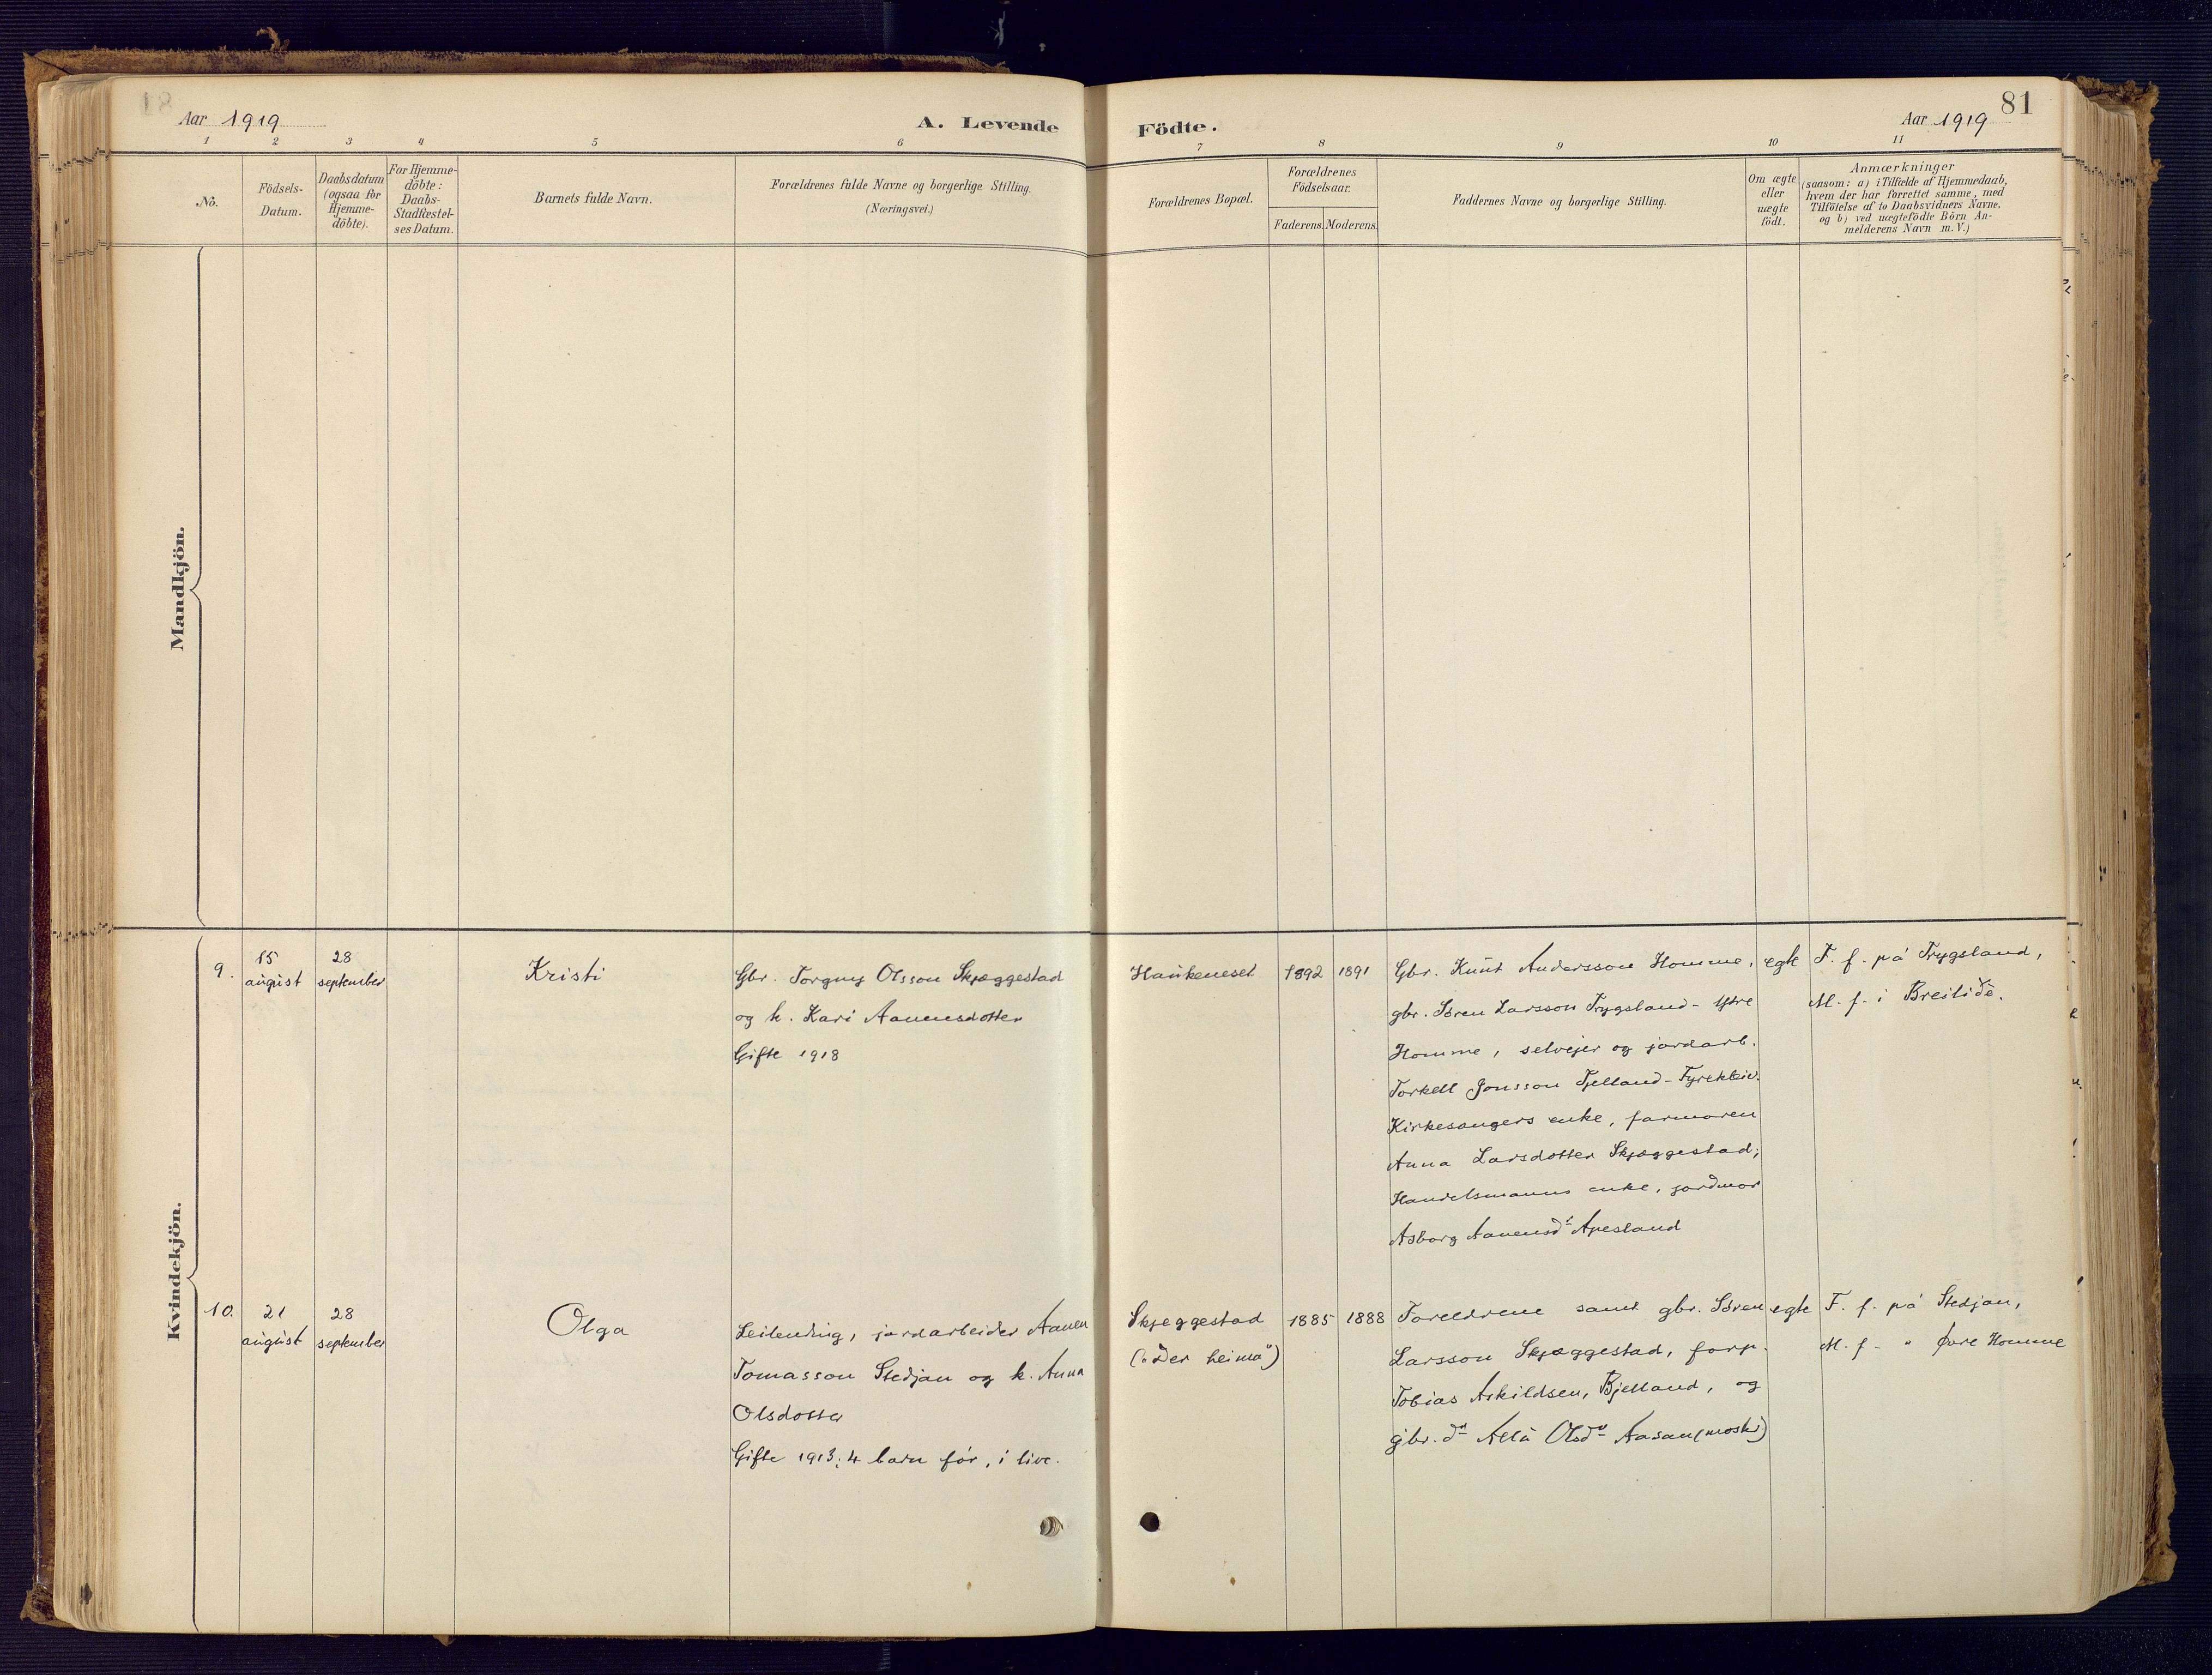 81
Aar 1919
A. Levende Födte.
Aar 1919
1 2 3 4 5 6 7 8 9 10 11
No.
Födsels-
Datum.
Daabsdatum
(ogsaa for
Hjemme-
döbte).
For Hjemme-
döbte:
Daabs-
Stadfæstel-
ses Datum.
Barnets fulde Navn.
Forældrenes fulde Navne og borgerlige Stilling.
(Næringsvei.)
Forældrenes Bopæl.
Forældrenes
Födselsaar.
Faderens. Moderens.
Faddernes Navne og borgerlige Stilling.
Om ægte
eller
uægte
födt.
Anmærkninger
(saasom: a) i Tilfælde af Hjemmedaab,
hvem der har forrettet samme, med
Tilföielse af to Daabsvidners Navne,
og b) ved uægtefödte Börn An-
melderens Navn m.V.)
Mandkjön.
Kvindekjön.
9.
15
august
28
september
Kristi
Gbr. Torgny Olsson Skjæggestad
og k. Kari Aanensdotter
Gifte 1918
Haukeneset
1892
1891
Gbr. Knut Andersson Homme,
gbr. Søren Larsson Trygsland-Ytre
Homme, selvejer og jordarb.
Torkell Jonsson Tjelland-Fyrekleiv.
Kirkesangers enke, farmoren
Anna Larsdotter Skjæggestad;
Handelsmanns enke, jordmor
Asborg Aanensdr Apesland
egte
F. f. på Trygsland,
M. f. i Breilidè.
10.
21
august
28
september
Olga
Leilending, jordarbeider Aanen
Tomasson Stedjan og k. Anna
Olsdotter
Gifte 1913; 4 barn før, i live.
Skjeggestad
("Der heima")
1885
1888
Foreldrene samt gbr. Søren
Larsson Skjæggestad, forp.
Tobias Askildsen, Bjelland, og
gbr. dr Olsdr Aasan (moster)
egte
F. f. på Stedjan,
M. f. " Øvre Homme